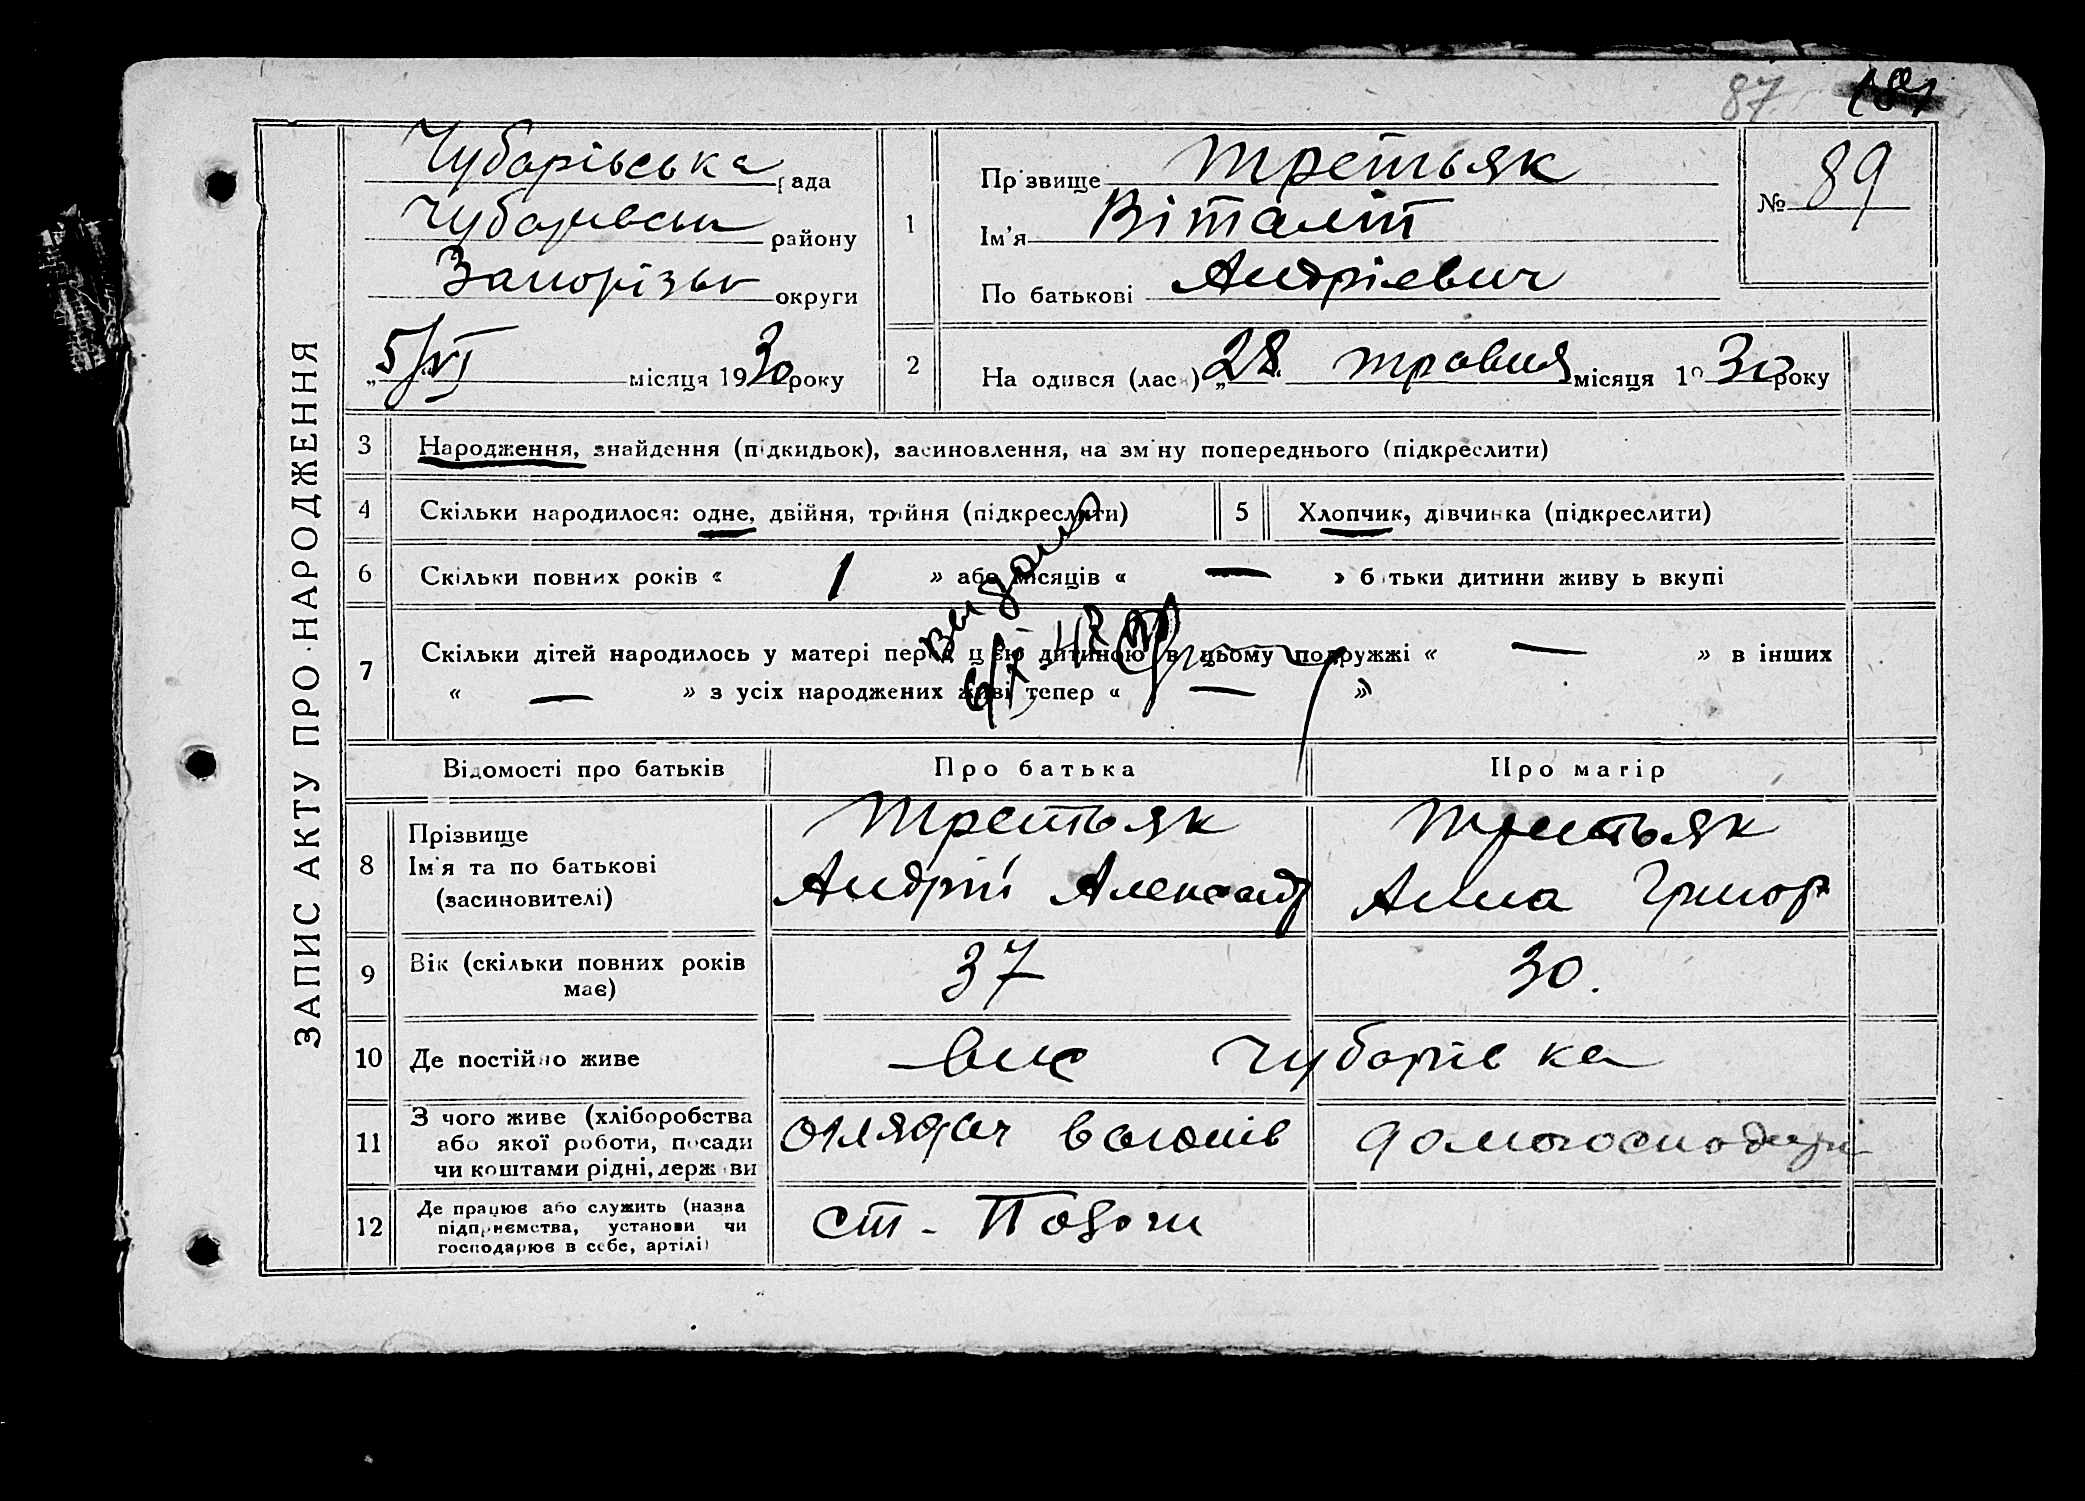 87
ЗАПИС АКТУ ПРО НАРОДЖЕННЯ
Чубарівська рада
Чубарівськ району
Запорізьк округи
5/VI місяця 1930 року
1
Прізвище Третьяк
Ім'я Віталій
По батькові Андрієвич
№ 89
2
На одився (лась) „28 травня місяця 1930 року
3 Народження, знайдення (підкидьок), засиновлення, на зміну попереднього (підкреслити)
4 Скільки народилося: одне, двійня, трійня (підкреслити)
5 Хлопчик, дівчинка (підкреслити)
6 Скільки повних років « 1 » або місяців « — » батьки дитини живуть вкупі
7 Скільки дітей народилось у матері перед цією дитиною в цьому подружжі « — » в інших
« — » з усіх народжених живі тепер « — »
Відомості про батьків Про батька Про матір
8
Прізвище
Ім'я та по батькові
(засиновителі)
Третьяк
Андрій Александр
Третьяк
Анна Григор
9 Вік (скільки повних років
має)
37 30.
10 Де постійно живе Чубарівка
11 З чого живе (хліборобства
або якої роботи, посади
чи коштами рідні, держави
оглядач вагонів
12 Де працює або служить (назва
підприємства, установи чи
господарює в себе, артілі)
ст - Пологи